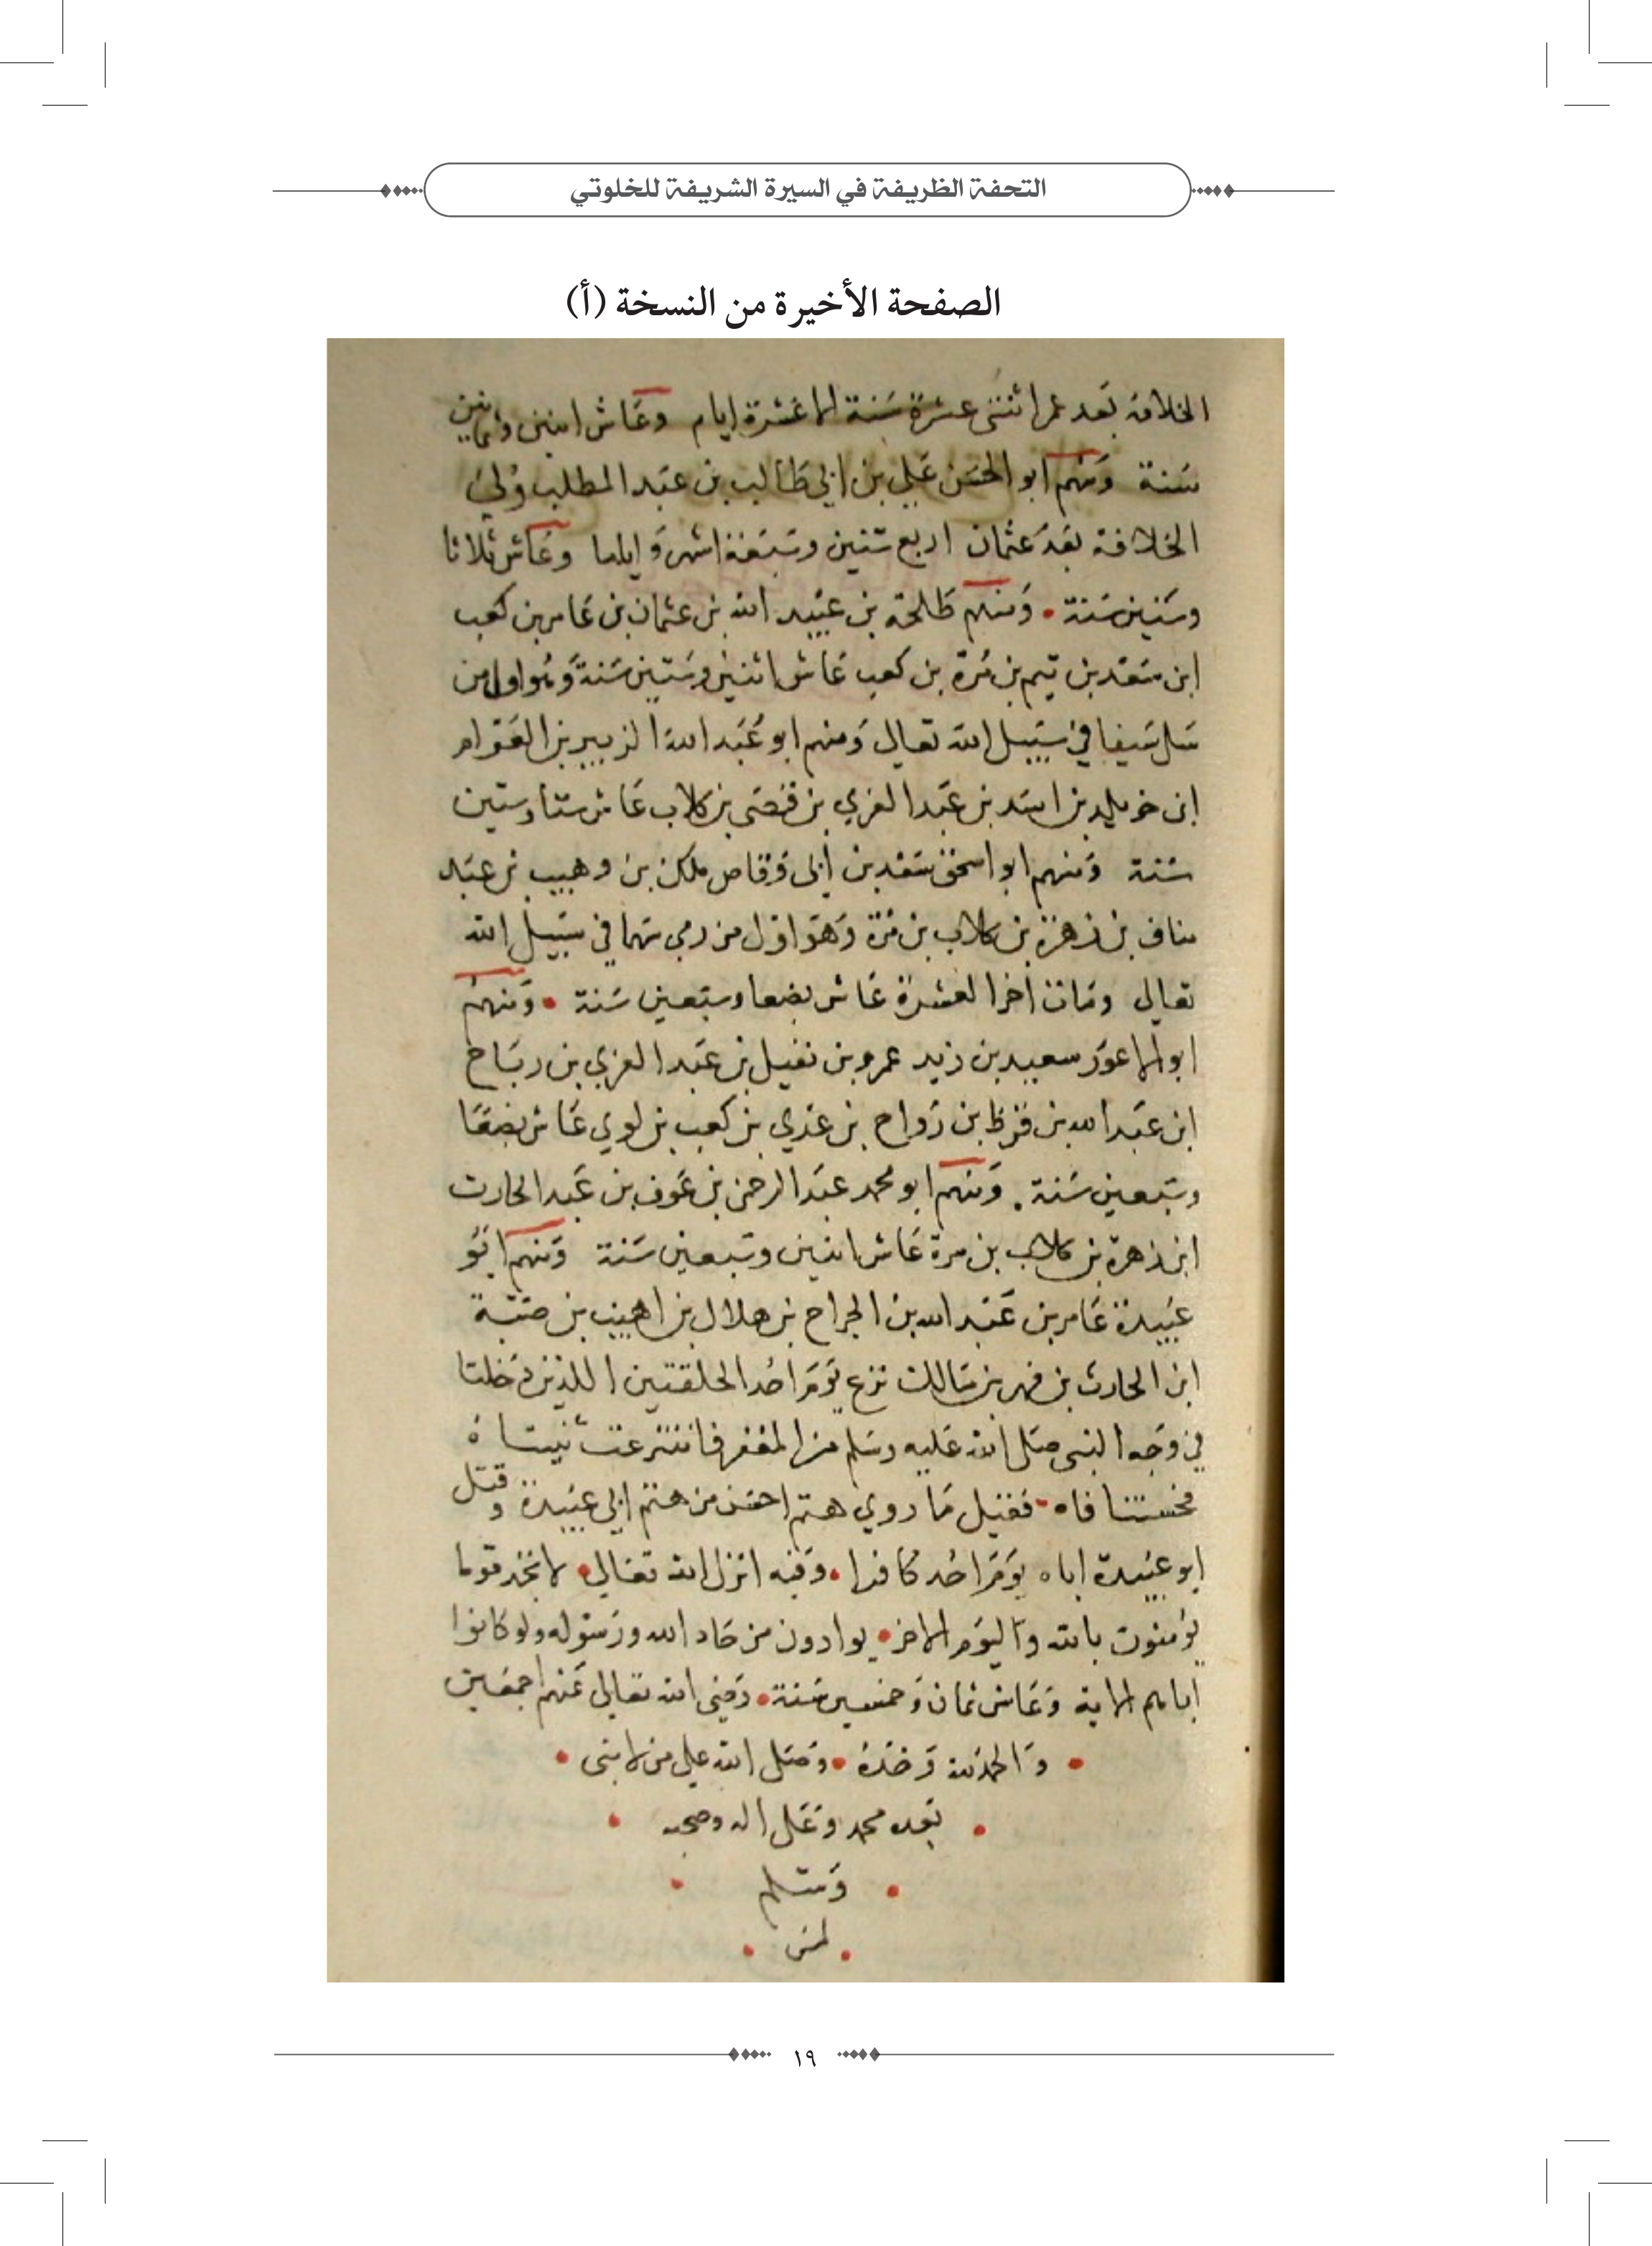 التحفة الظريفة في السيرة الشريفة للخلوتي
الصفحة الأخيرة من النسخة (أ)
الخلافة بعد عمر اثنتى عشرة سنة الا عشرة ايام وعاش اثنين وثمانين
سنة ومنهم ابو الحسن علي بن ابي طالب بن عبد المطلب ولي
الخلافة بعد عثمان اربع سنين وسبعة اشهر و اياما وعاش ثلاثا
وستين سنة • ومنهم طلحة بن عبيد الله بن عثمان بن عامر بن كعب
ابن سعد بن تيم بن مرة بن كعب عاش اثنين وستين سنة وهو اول من
سل سيفا في سبيل الله تعالى ومنهم ابو عبد الله الزبير بن العوام
ابن خويلد بن اسد بن عبد العزي بن قصى بن كلاب عاش ستا وستين
سنة ومنهم ابو اسحق سعد بن ابى وقاص ملك بن وهيب بن عبد
مناف بن زهرة بن كلاب بن مرة وهو اول من رمى سهما في سبيل الله
تعالى ومات اخر العشرة عاش بضعا وسبعين سنة • ومنهم
ابو الاعور سعيد بن زيد عمرو بن نفيل بن عبد العزي بن رباح
ابن عبد الله بن قرظ بن رواح بن عدي بن كعب بن لوي عاش بضعا
وسبعين سنة . ومنهم ابو محمد عبد الرحمن بن عوف بن عبد الحارث
ابن زهرة بن كلاب بن مرة عاش اثنين وسبعين سنة ومنهم ابو
عبيدة عامر بن عبد الله بن الجراح بن هلال بن اهيب بن ضبة
ابن الحارث بن فهر بن مالك نزع يوم احد الحلقتين اللذين دخلتا
في وجه النبى صلى الله عليه وسلم من المغفر فانتزعت ثنيتاه
فحسنتا فاه • فقيل ما روي هتم احسن من هتم ابي عبيدة وقتل
ابو عبيدة اباه يوم احد كافرا • وفيه انزل الله تعالى • لا تجد قوما
يؤمنون بالله واليوم الاخر • يوادون من حاد الله ورسوله ولو كانوا
اباهم الاية وعاش ثمان وخمسين سنة • رضي الله تعالى عنهم اجمعين
• والحمد لله وحده • وصلى الله على من لا نبى •
• بعده محمد وعلى اله وصحبه •
• وسلم •
• •
١٩